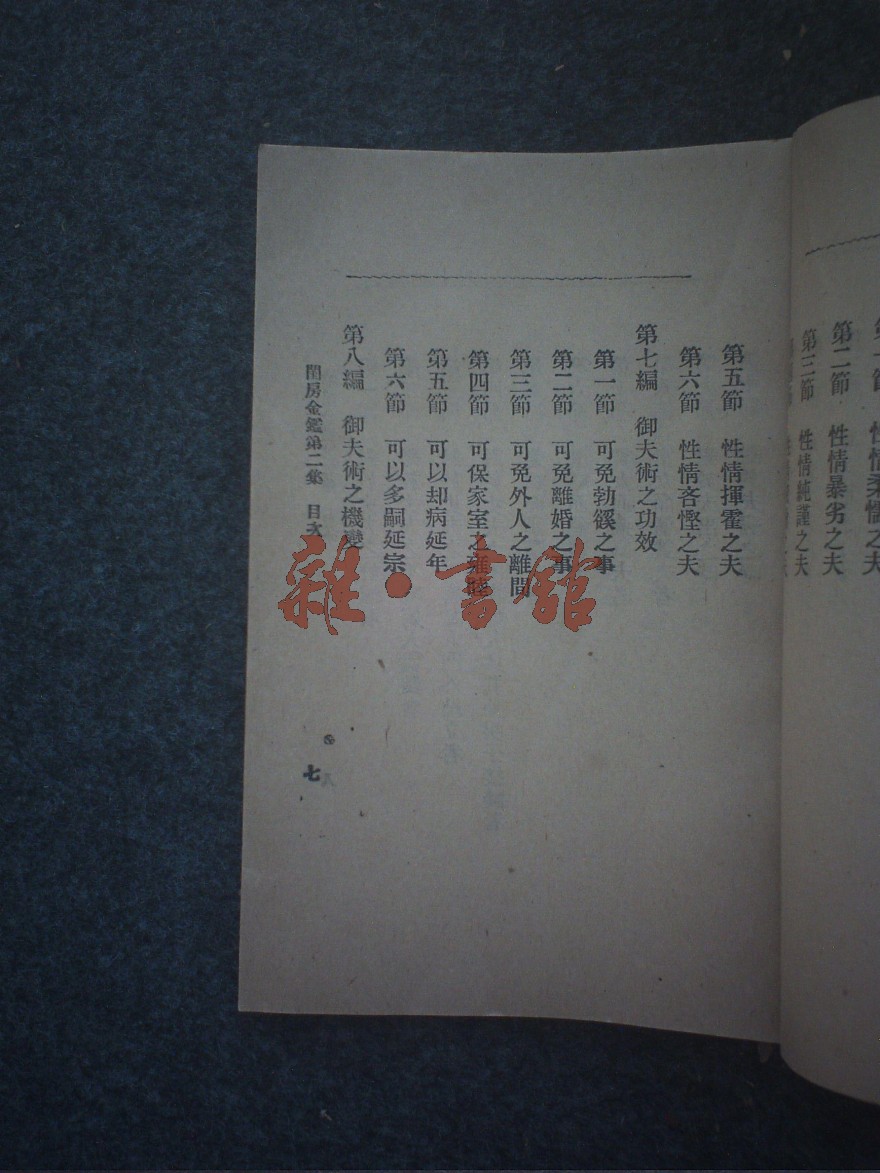 第二節　性情暴劣之夫
第三節　性情純謹之夫
第五節　性情揮霍之夫
第六節　性情吝慳之夫
第七編　御夫術之功效
第一節　可免勃豀之事
第二節　可免離婚之事
第三節　可免外人之離間
第四節　可保家室之雍睦
第五節　可以却病延年
第六節　可以多嗣延宗
第八編　御夫術之機變
閨房金鑑第二集　目次
七
雜·書館